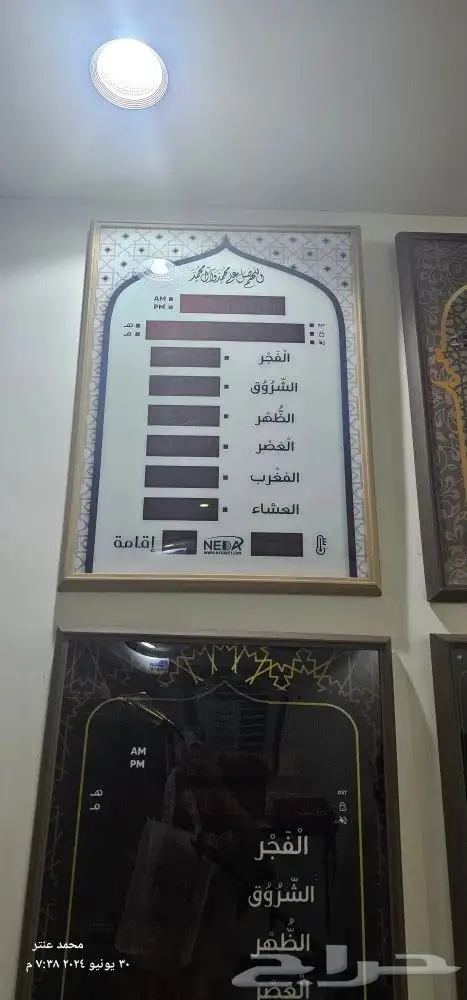 اللهم صل على محمد وآل محمد
AM
PM
هـ
مـ
DST
الْفَجْر
الشُّرُوُق
الظُّهْر
الْعَصْر
المَغْرب
العشاء
إقامة
NEDA
AM
PM
هـ
مـ
DST
الْفَجْر
الشُّرُوُق
الظُّهْر
الْعَصْر
محمد عنتر
٣٠ يونيو ٢٠٢٤ ٧:٣٨ م
حراج